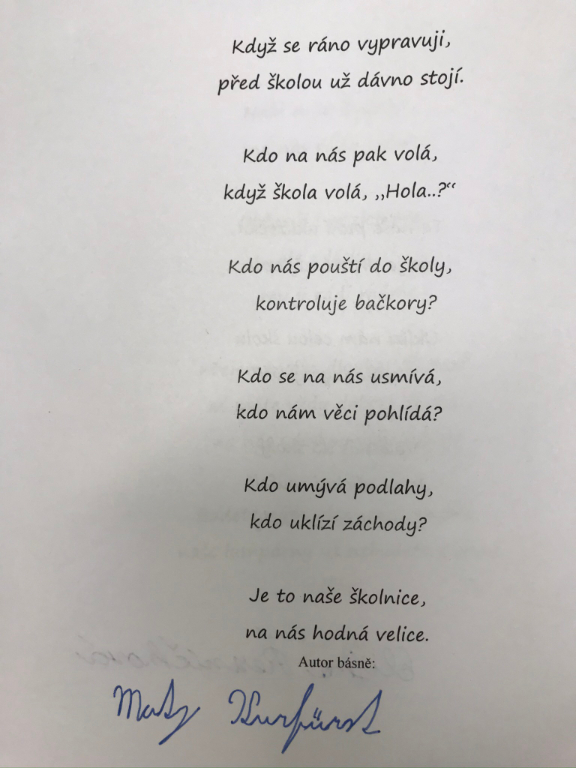 Když se ráno vypravuji,
před školou už dávno stojí.
Kdo na nás pak volá,
když škola volá, ,,Hola..?“
Kdo nás pouští do školy,
kontroluje bačkory?
Kdo se na nás usmívá,
kdo nám věci pohlídá?
Kdo umývá podlahy,
kdo uklízí záchody?
Je to naše školnice,
na nás hodná velice.
Autor básně:
Maty Kurfürst